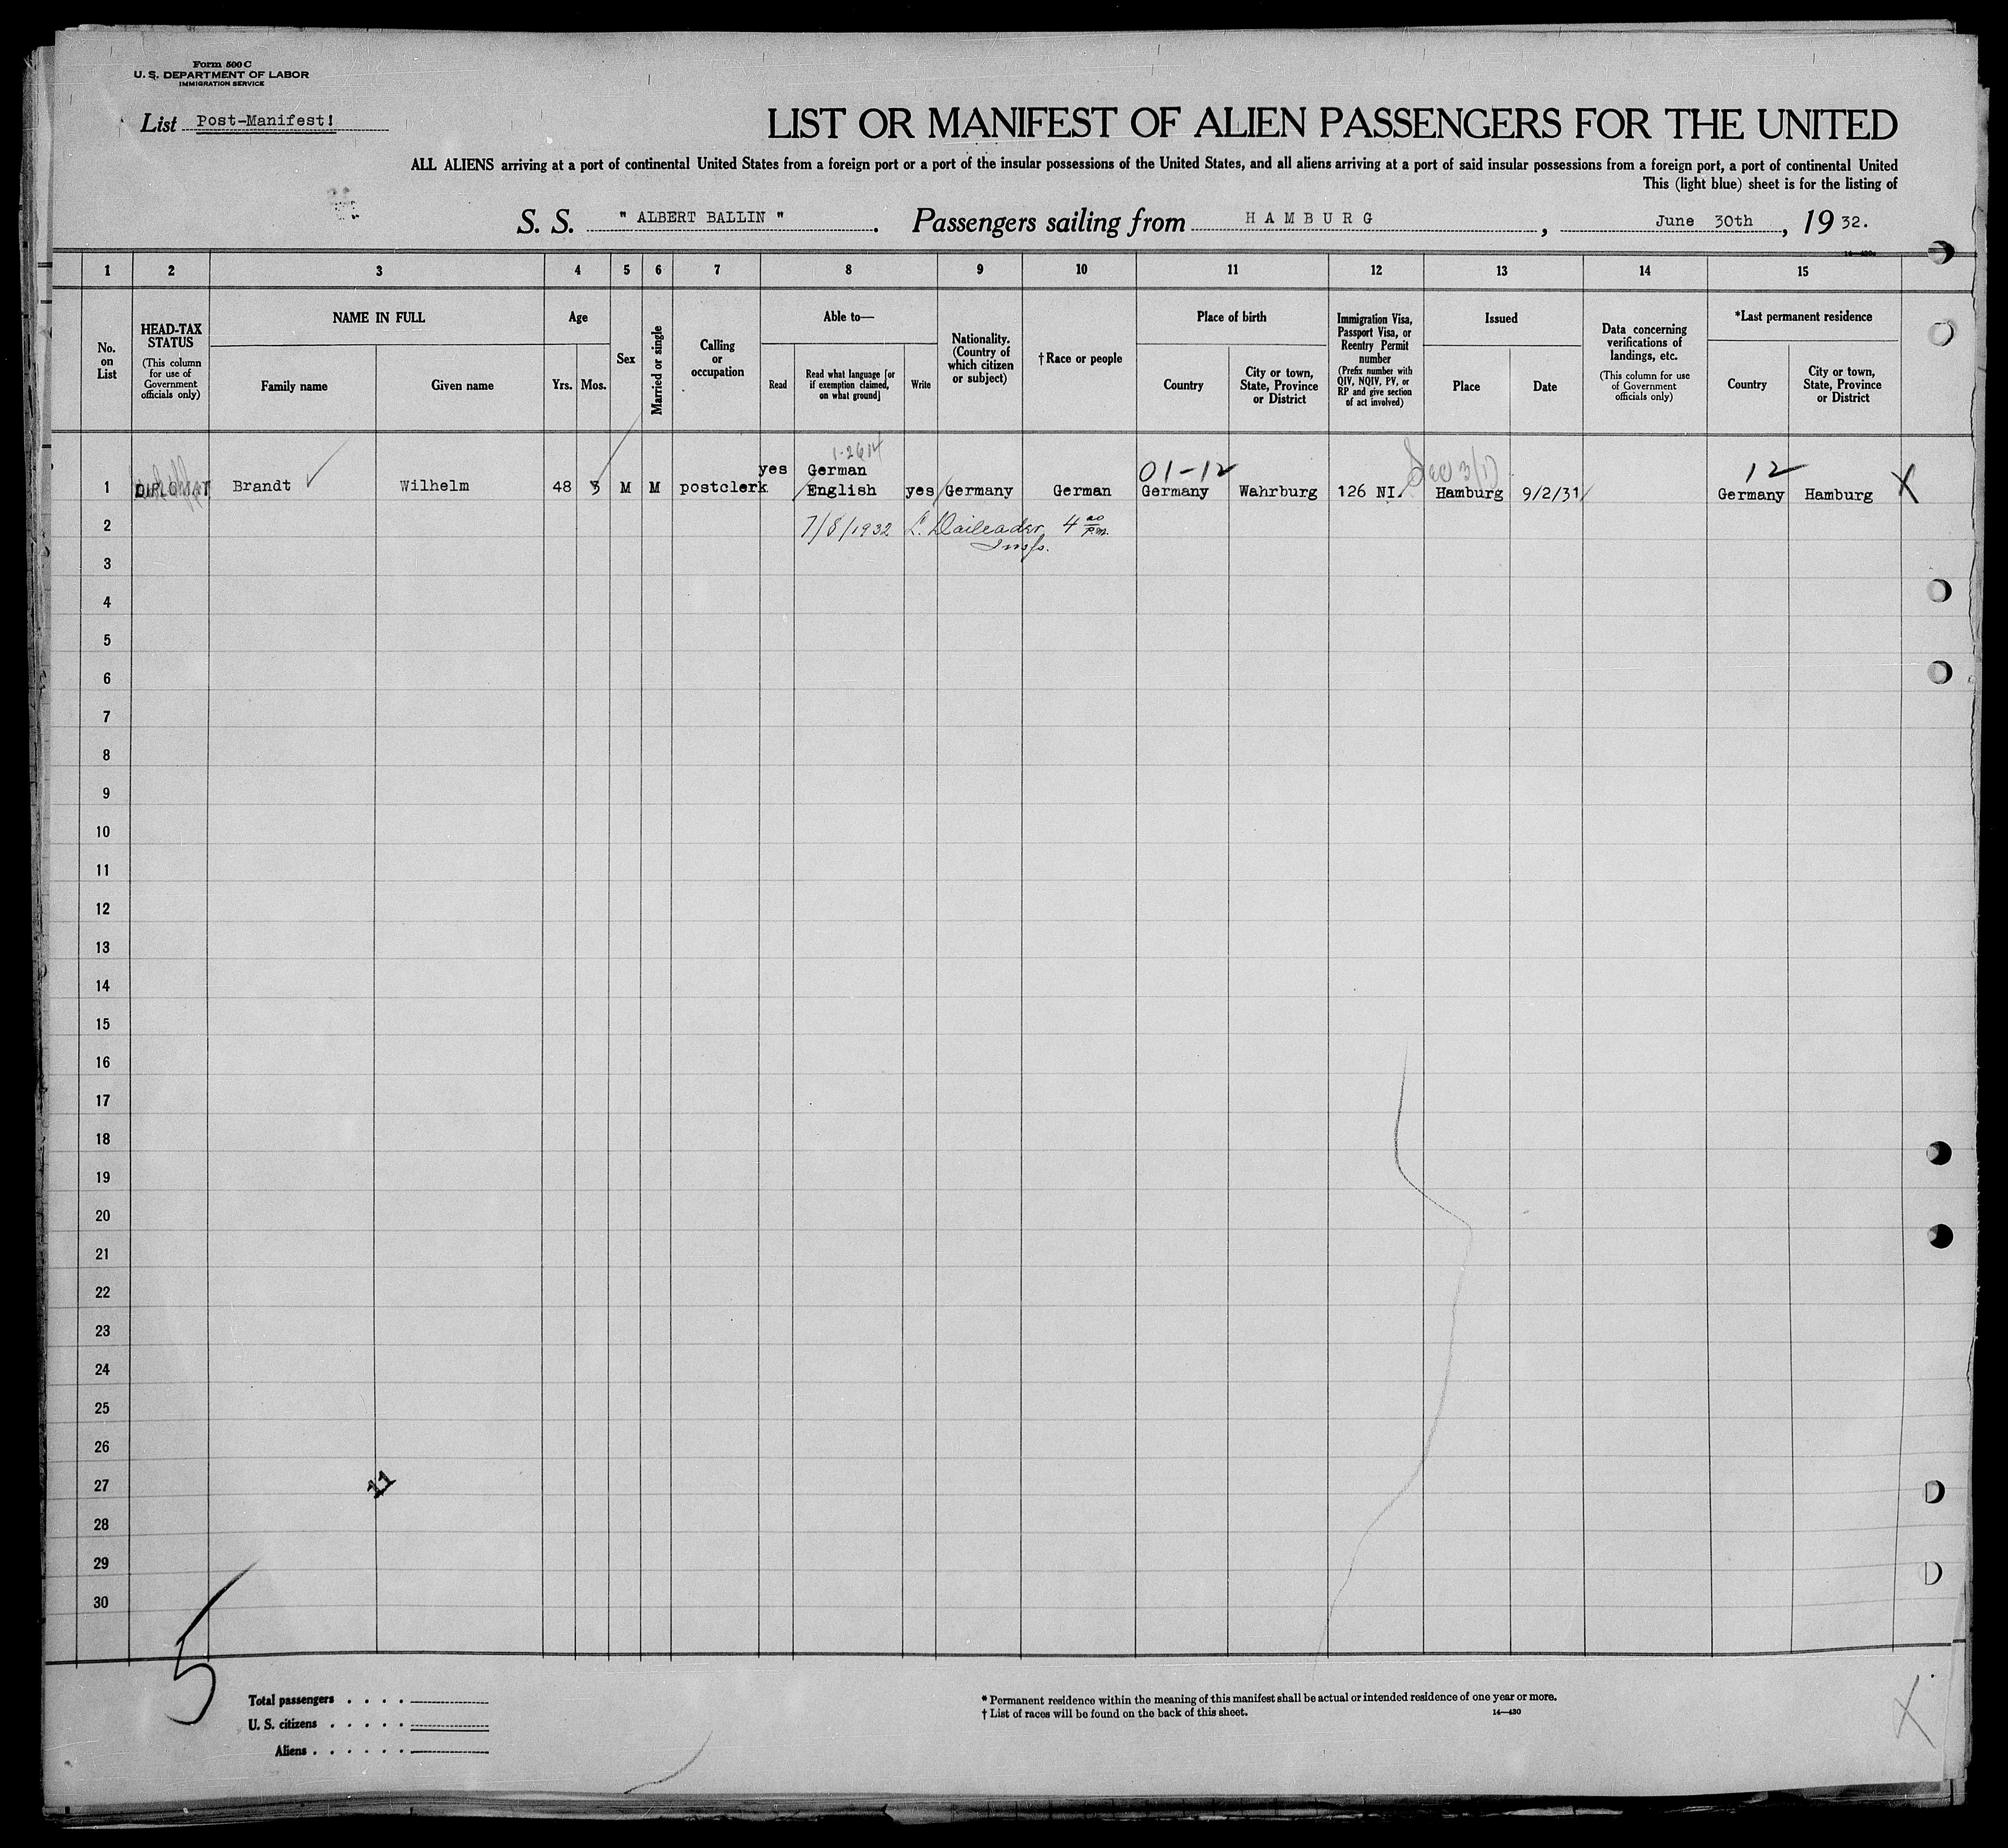 Form 500 C
U. S. DEPARTMENT OF LABOR
IMMIGRATION SERVICE
List Post-Manifest!
LIST OR MANIFEST OF ALIEN PASSENGERS FOR THE UNITED
ALL ALIENS arriving at a port of continental United States from a foreign port or a port of the insular possessions of the United States, and all aliens arriving at a port of said insular possessions from a foreign port, a port of continental United
This (light blue) sheet is for the listing of
S. S. " ALBERT BALLIN ". Passengers sailing from HAMBURG, June 30th, 19 32.
1 2 3 4 5 6 7 8 9 10 11 12 13 14 15
No. on List
HEAD-TAX STATUS (This column for use of Government officials only)
NAME IN FULL
Family name
Given name
Age
Yrs.
Mos.
Sex
Married or single
Calling or occupation
Able to—
Read
Read what language [or if exemption claimed, on what ground]
Write
Nationality. (Country of which citizen or subject)
†Race or people
Place of birth
Country
City or town, State, Province or District
Immigration Visa, Passport Visa, or Reentry Permit number (Prefix number with QIV, NQIV, PV, or RP and give section of act involved)
Issued
Place
Date
Data concerning verifications of landings, etc. (This column for use of Government officials only)
*Last permanent residence
Country
City or town, State, Province or District
01-12 12
yes German
1 DIPLOMAT Brandt Wilhelm 48 3 M M postclerk English yes Germany German Germany Wahrburg 126 NI. Hamburg 9/2/31 Germany Hamburg X
2 7/8/1932 L. Daileader 4 00 P.M.
Insp.
3
4
5
6
7
8
9
10
11
12
13
14
15
16
17
18
19
20
21
22
23
24
25
26
27 11
28
29
30
5
Total passengers
U. S. citizens
Aliens
* Permanent residence within the meaning of this manifest shall be actual or intended residence of one year or more.
† List of races will be found on the back of this sheet.
14—430
X